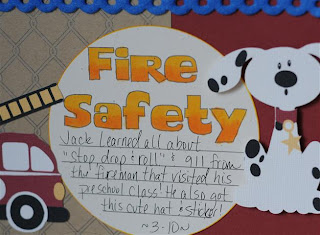 Fire
Safety
Jack learned all about
"Stop, drop & roll" & 911 from
the fireman that visited his
preschool class! He also got
this cute hat & sticker!
~3-10~